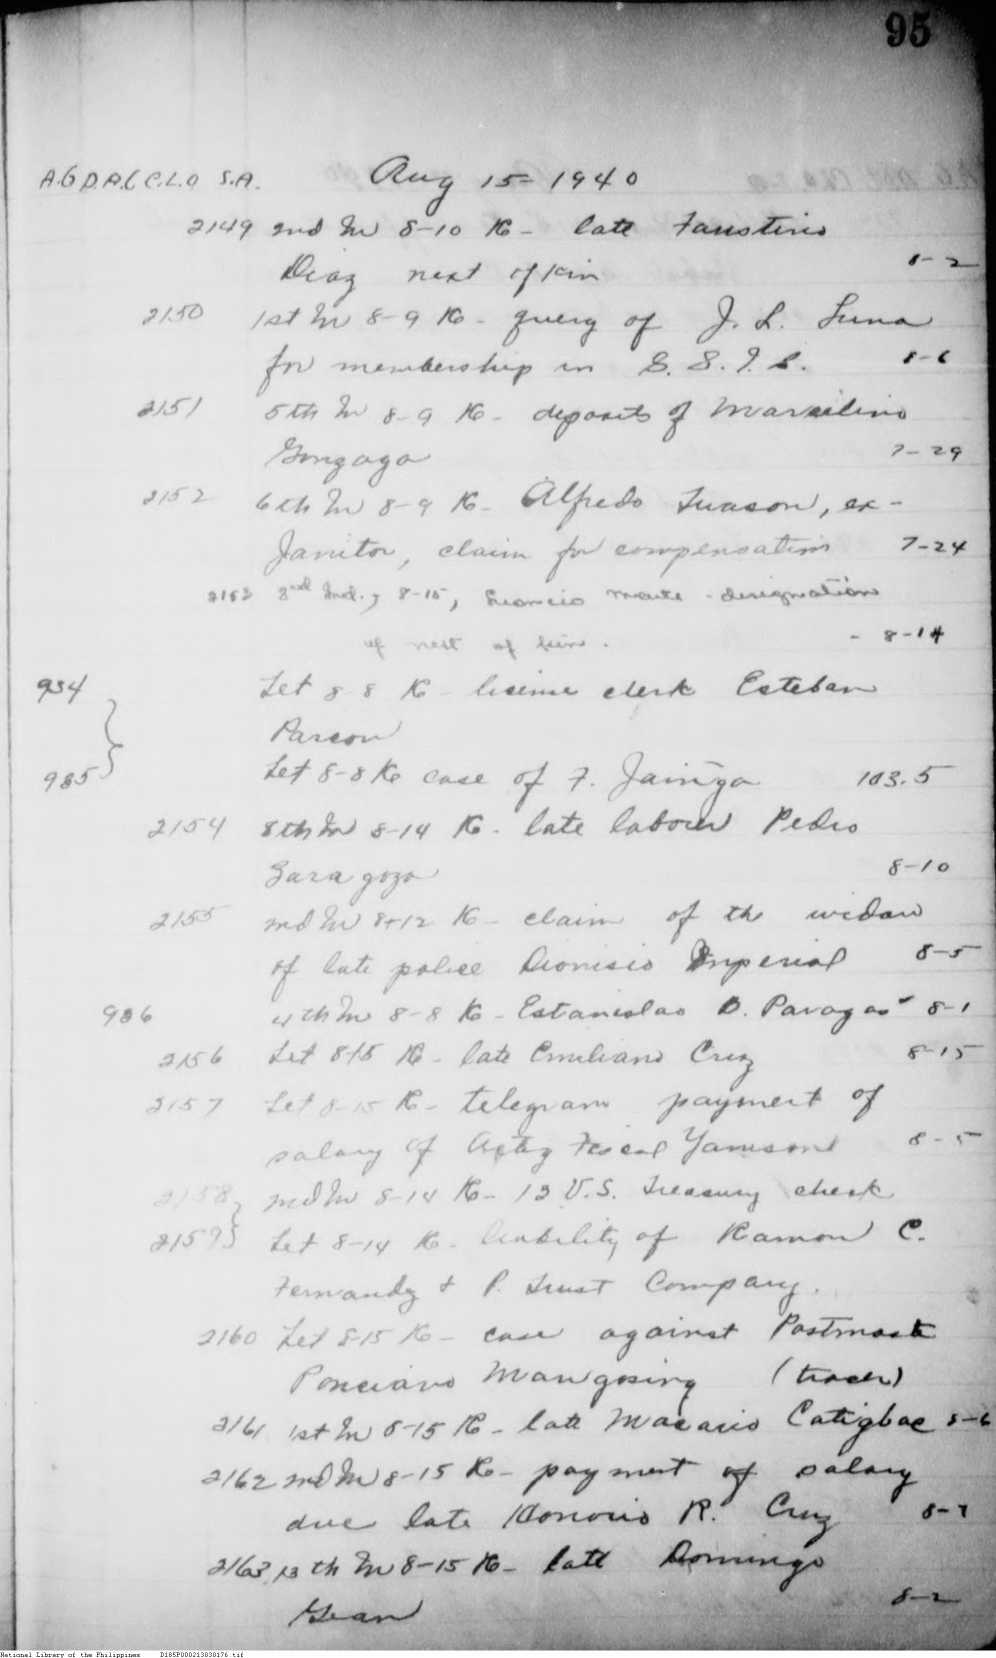 95
A.G D.A.G C.L.O S.A. Aug 15- 1940
2149 2nd In 8-10 K- late Faustino
Diaz next of kin 8-2
2150 1st In 8-9 K- query of J. L. Luna
for membership in G. S. I. S. 8-6
2151 5th In 8-9 K- deposits of Marcelino
Gonzaga 7-29
2152 6th In 8-9 K- Alfredo Tuason, ex-
Janitor, claim for compensation 7-24
2153 2nd Ind., 8-15, Leoncio - designation
of next of kin. - 8-14
934 Let 8-8 K- license clerk Esteban
Parcon
935 Let 8-8 K- case of F. 103.5
2154 8th In 8-14 K- late laborer Pedro
Saragoza 8-10
2155 2nd In 8-12 K- claim of the widow
of late police Dionisio Imperial 8-5
936 4th In 8-8 K- Estanislao D. 8-1
2156 Let 8-15 K- late Emiliano Cruz 8-15
2157 Let 8-15 K- telegram payment of
salary of Actg Fiscal 8-5
2158 2nd In 8-14 K- 13 U.S. Treasury check
2159 Let 8-14 K- liability of Ramon C.
Fernandez & P. Trust Company.
2160 Let 8-15 K- case against Postmaste
Ponciano Mangosing (tracer)
2161 1st In 8-15 K- late Macario Catigbac 8-6
2162 2nd In 8-15 K- payment of salary
due late Honorio R. Cruz 8-7
2163 13th In 8-15 K- late Domingo
8-2
National Library of the Philippines D185P000213030176.tif